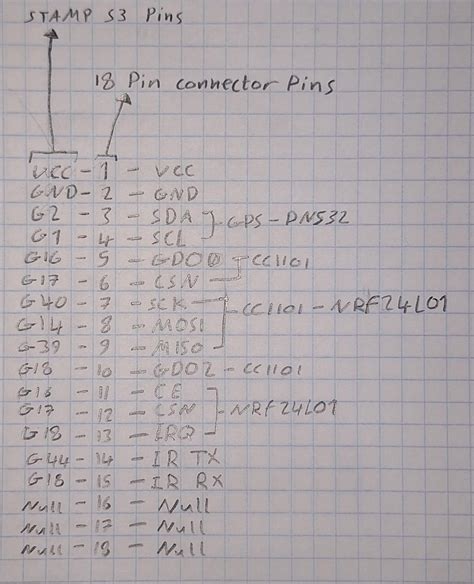 STAMP S3 Pins
18 Pin connector Pins
VCC - 1 - VCC
GND - 2 - GND
G2 - 3 - SDA
G1 - 4 - SCL
GPS - PN532
G16 - 5 - GDO0
G17 - 6 - CSN
CC1101
G40 - 7 - SCK
G14 - 8 - MOSI
G39 - 9 - MISO
CC1101 - NRF24L01
G18 - 10 - GDO2 - CC1101
G16 - 11 - CE
G17 - 12 - CSN
G18 - 13 - IRQ
NRF24L01
G44 - 14 - IR TX
G18 - 15 - IR RX
Null - 16 - Null
Null - 17 - Null
Null - 18 - Null